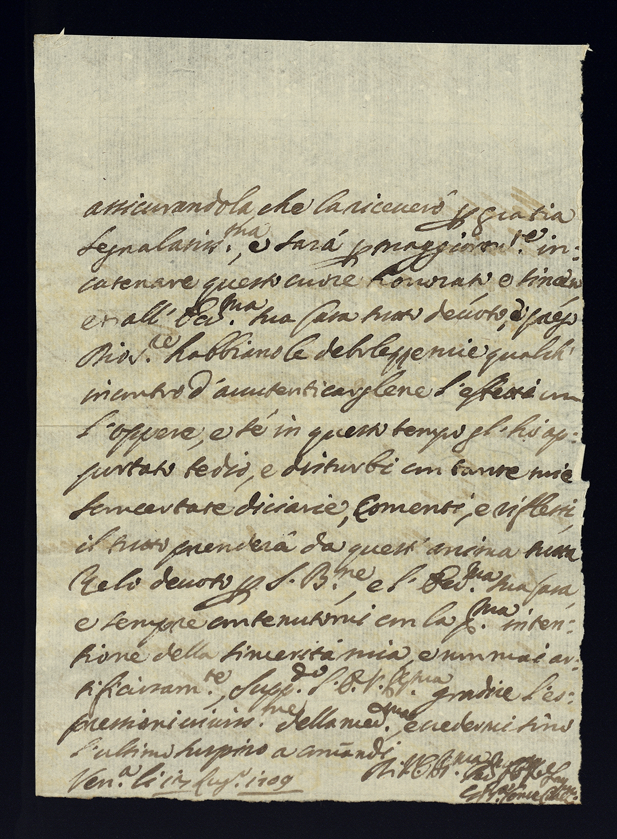 assicurandola che la riceverò p gratia
segnalatiss.ma, e sarà p maggiorm.te in:
catenare questo cuore honorato e sincero
et all' Ecc.ma sua Casa tutto devoto, e
Dio habbiano le debolezze mie qualch'
incontro d'auutenticarglene l'effetti con
l'oppere, e sé in questo tempo gl'hò ap:
portato tedio, e disturbi con tante mie
sconcertate diciarie, Comenti, e riflessi,
il tutto prenderà da quest' anima tutta
Zelo devoto p S. B.ne, e l' Ecc.ma sua Casa
e sempre contenutomi con la p.ma inten:
tione della sincerità mia, e non mai ar:
tificiosam.te, supp.do gradire l'es:
pressioni viviss.me della med.ma, e credermi sino
l'ultimo suspiro a comandi
Ven.a li Lug.o 1709